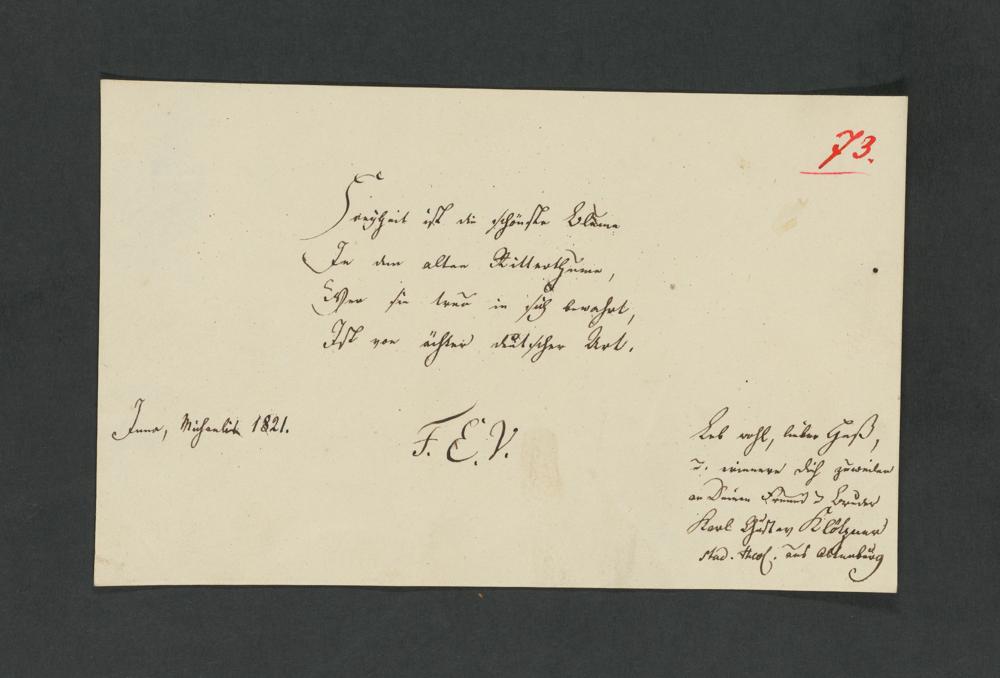 73.
Freyheit ist die schönste Blume
In dem alten Ritterthume,
Wer sie treu in sich bewahrt,
Ist von ächter deutscher Art.
Jena, Michaelis 1821.
F. E. V.
Leb wohl, lieber
u. erinnere Dich zuweilen
an Deinen Freund u Bruder
Karl Gustav Klötzner
stud. theol. aus Altenburg